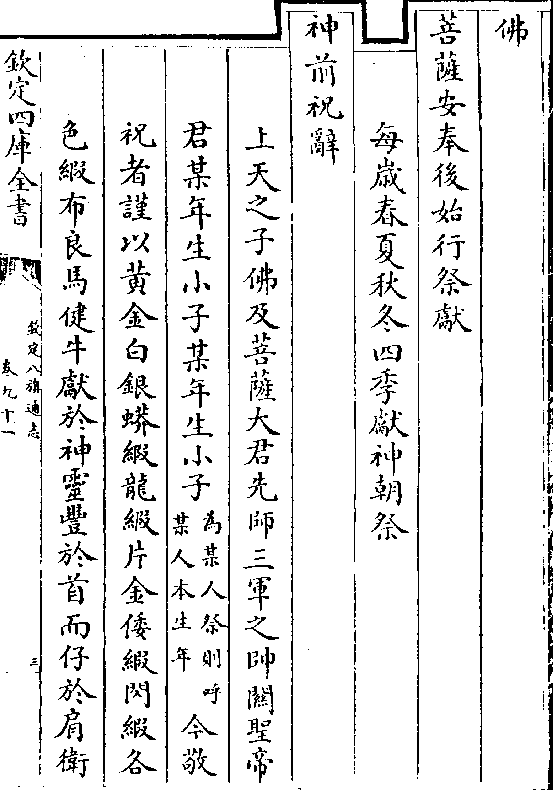 佛
菩薩安奉後始行祭獻
每歳春夏秋冬四季獻神朝祭
神前祝辭
上天之子佛及菩薩大君先師三軍之帥關聖帝
君某年生小子某年生小子為某人祭則呼某人本生年今敬
祝者謹以黄金白銀蟒緞龍緞片金倭緞閃緞各
色緞布良馬健牛獻於神靈豐於首而仔於肩衛
欽定四庫全書
欽定八旗通志
卷九十一
三